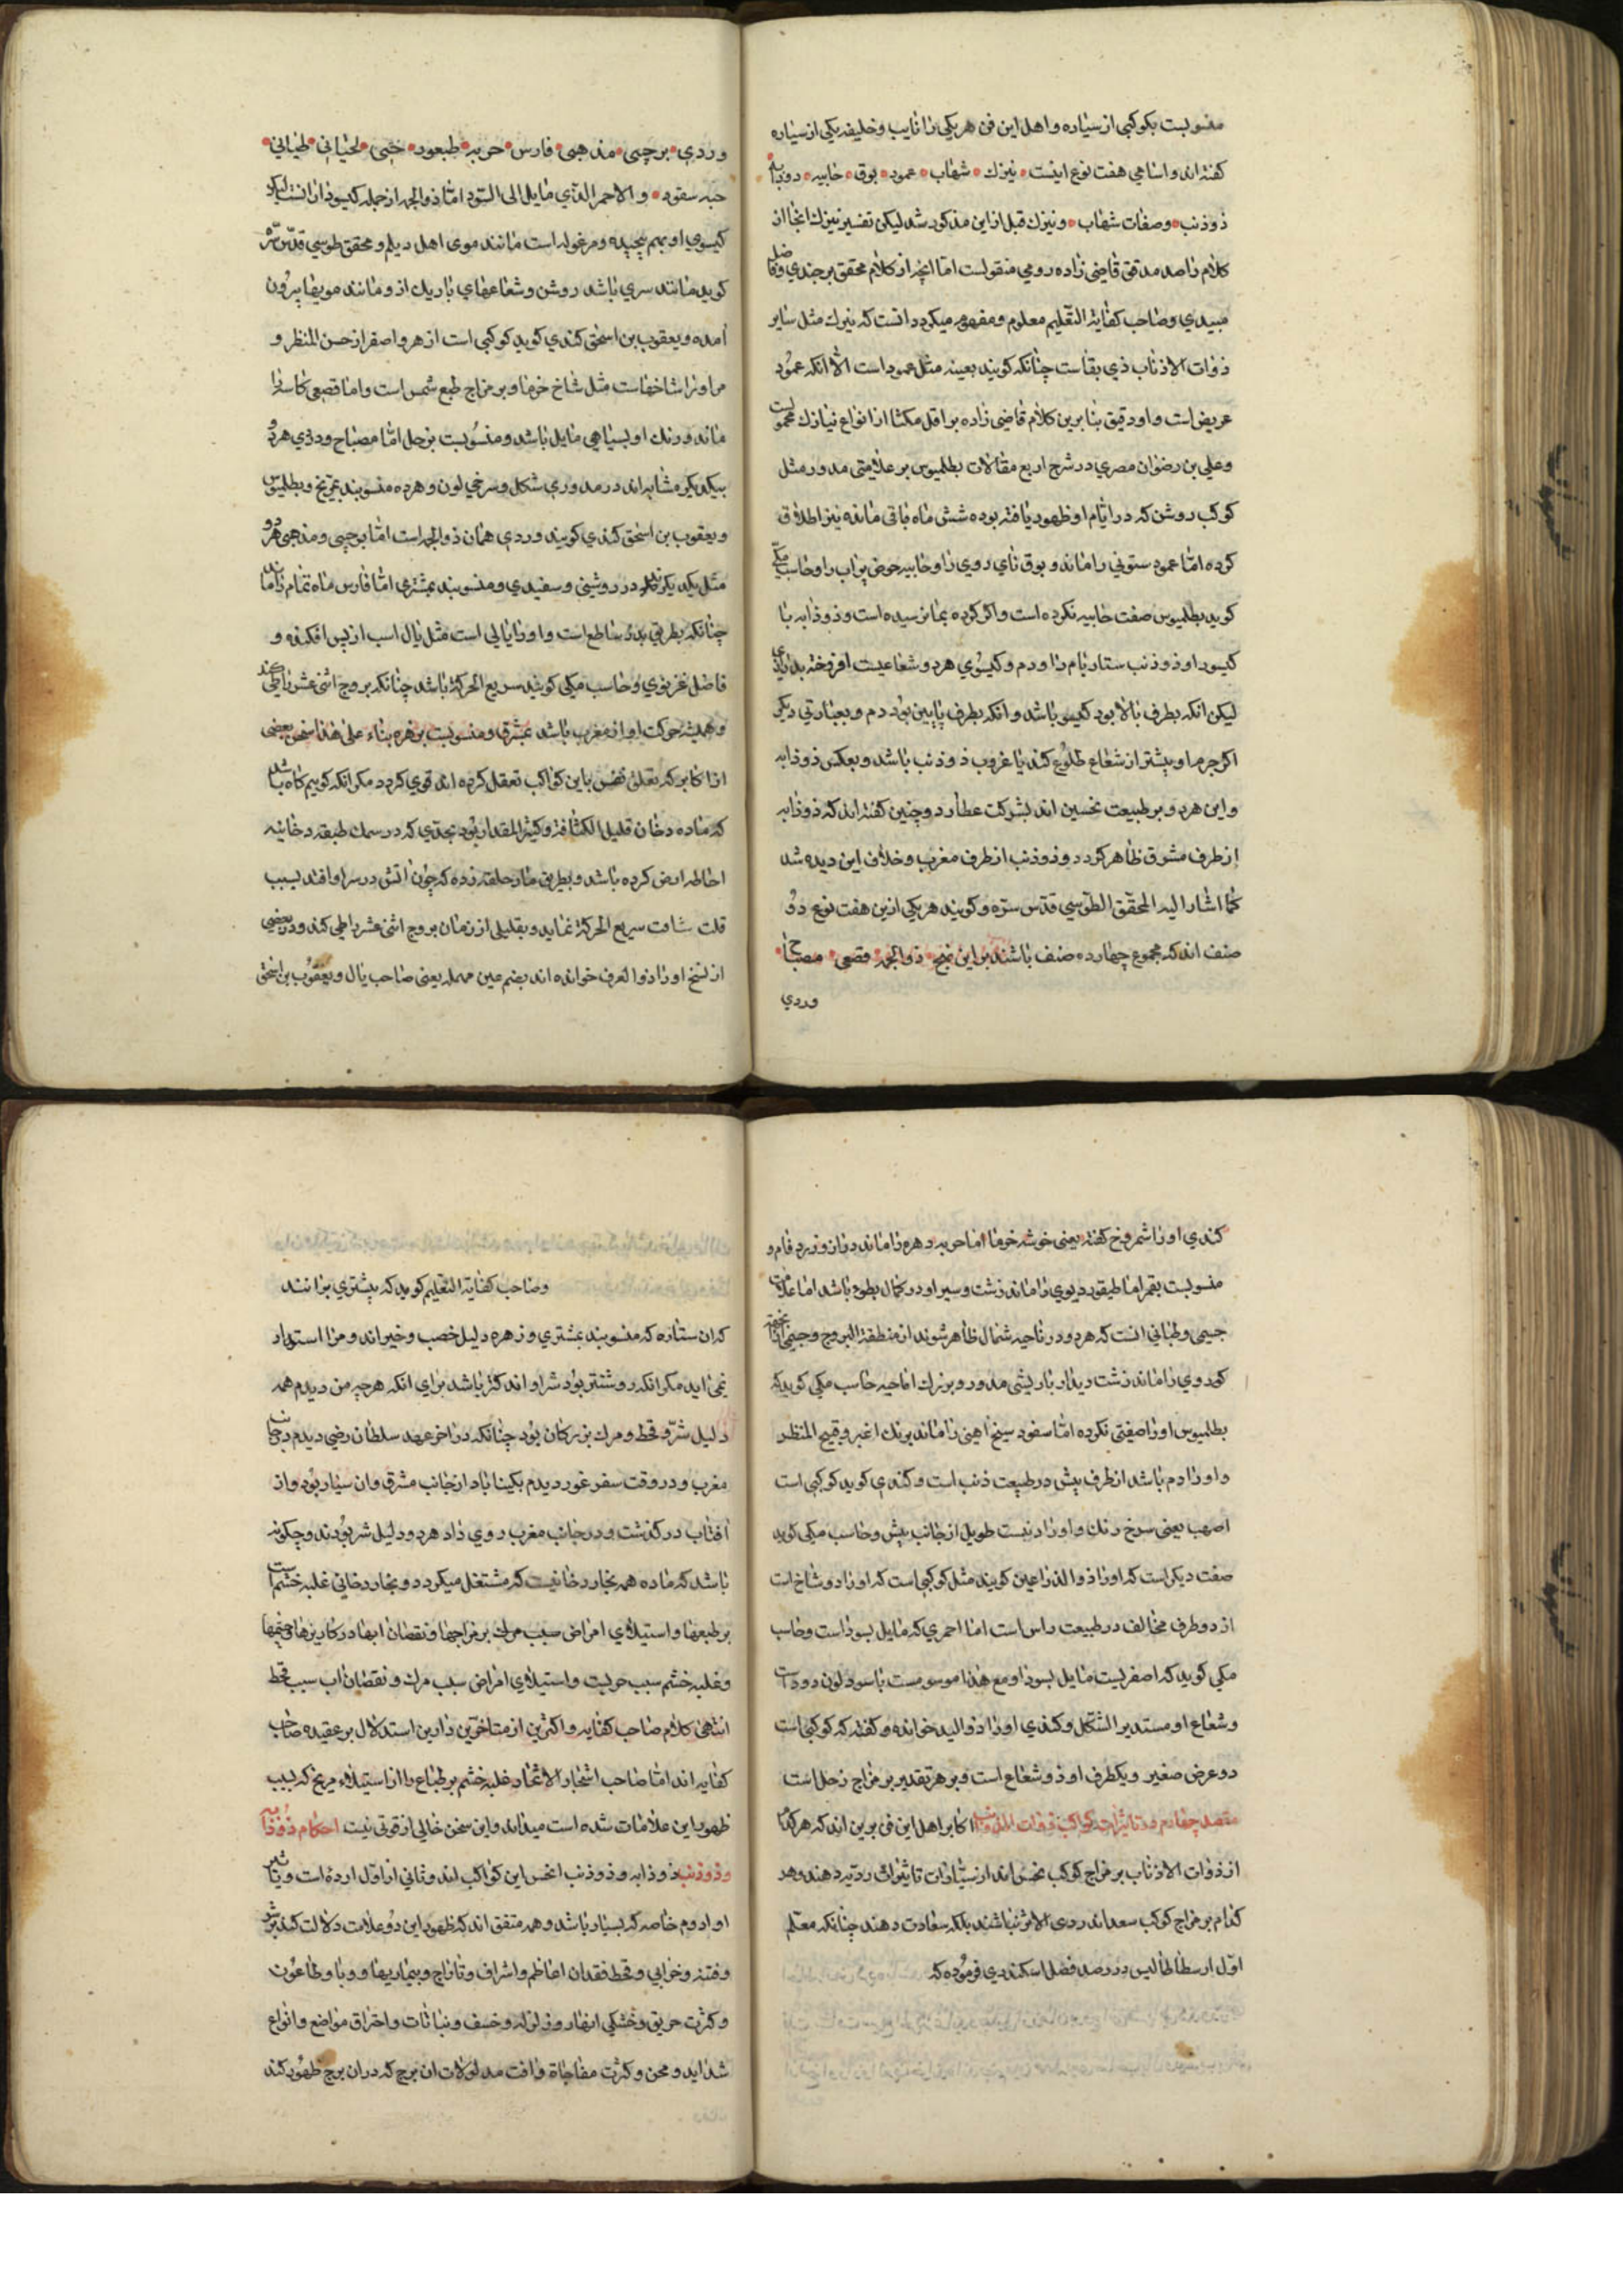 منسوبست بکوکبی از سیاره و اهل این فن هر یکی را نایب و خلیفه یکی از سیاره
کفته اند و اسامی هفت نوع اینست نیزك شهاب عمود بوق خابیه دوذابه
ذوذنب وصفات شهاب و نیزك قبل ازاین مذکور شد لیکن تفسیر نیزك انجا از
کلام راصد مدقق قاضی زاده رومی منقولست امّا انچه از کلام محقق برجندی و فاضل
میبدی و صاحب کفایة التعلیم معلوم و مفهوم میکردد انست که نیزك مثل سایر
ذوات الاذناب ذی بقاست چنانکه کویند بعینه مثل عمود است الّا انکه عمود
عریض است و او دقیق بنابرین کلام قاضی زاده بر اقل مکثا از انواع نیازك محمولست
و علی بن رضوان مصری در شرح اربع مقالات بطلمیوس بر علامتی مدور مثل
کوکب روشن که در ایّام او ظهور یافته بوده شش ماه باقی مانده نیز اطلاق
کرده امّا عمود ستونی را ماند و بوق نای روی را و خابیه حوض پر اب را و حاسب مکّی
کوید بطلمیوس صفت خابیه نکرده است و اکر کرده بما نرسیده است و ذوذابه با
کیسو را و ذوذنب ستاره بام را و دم و کیسوی هردو شعاعیست افروخته بدرازی
لیکن انکه بطرف بالا بود کیسو باشد و انکه بطرف پایین بود دم و بعبارتی دیکر
اکر جرم او بیشتر از شعاع طلوع کند یا غروب ذوذنب باشد و بعکس ذوذابه
و این هردو بر طبیعت نحسین اند بشرکت عطارد و چنین کفته اند که ذوذابه
از طرف مشرق ظاهر کردد و ذوذنب از طرف مغرب و خلاف این دیده شد
کما اشار الیه المحقّق الطوسی قدّس سرّه و کویند هر یکی ازین هفت نوع دو
صنف اند که مجموع چهارده صنف باشند براین نهج ذوالجمه قصعی مصباح
وردی
وردی برجیسی مذهبی فارس حربه طبعود حبیبی لحیانی
حبه سفود و الاحمر الذی مایل الی السّود امّا ذوالجمه از جمله کیسو دارانست لیکن
کیسوی او بهم پیچیده و مرغوله است مانند موی اهل دیلم و محقق طوسی قدّس سرّه
کوید مانند سری باشد روشن و شعاعهای باریك ازو مانند مویها بیرون
آمده و یعقوب بن اسحق کندی کوید کوکبی است ازهر و اصفر از حسن المنظر و
مر او را شاخهاست مثل شاخ خرما و بر مزاج طبع شمس است و اما قصعی کاسه را
ماند و رنك او بسیاهی مایل باشد و منسوبست بزحل امّا مصباح و وردی هردو
بیکدیکر مشابه اند در مدوری شکل و سرخی لون و هردو منسوبند بمریخ و بطلمیوس
و یعقوب بن اسحق کندی کویند وردی همان ذوالجمه است امّا برجیسی و مذهبی هردو
مثل یکدیکرند در روشنی و سفیدی و منسوبند بمشتری امّا فارس ماه تمام را ماند
چنانکه بطریق بدر ساطع است و او را یالی است مثل یال اسب از پس افکنده و
فاضل غزنوی و حاسب مکی کویند سریع الحرکة باشد چنانکه بروج اثنی عشر را طی کند
و همیشه حرکت او از مغرب باشد بمشرق و منسوبست بزهره بناء علی هذا سخن بعضی
از اکابر که تعلق نفس باین کواکب تعقل کرده اند قوی کردد مکر انکه کوییم کاه باشد
که ماده دخان قلیل الکثافة و کثیر المقدار بود بحدّی که در سمك طبقه دخانیه
احاطه ارض کرده باشد و بطریق مار حلقه زده که چون اتش در سر او افتد بسبب
قلت سریع الحرکة نماید و بقلیلی از زمان بروج اثنی عشر را طی کند و در بعضی
از نسخ او را ذوالعرف خوانده اند بضم عین مهمله یعنی صاحب یال و یعقوب بن اسحق
کندی او را شمروخ کفته یعنی خوشه خرما اما حربه دهره را ماند دراز و زرد فام و
منسوبست بقمر اما طیفور دیوی را ماند زشت و سیر او در کمال بطوء باشد اما علامت
و لحیانی انست که هردو در ناحیه شمال ظاهر شوند از منطقة البروج
کوردوی را ماند زشت دیدار با ریشی مدور و بزرك اما حبه حاسب مکی کوید که
بطلمیوس او را صفتی نکرده امّا سفود سیخ اهنی را ماند برنك اغبر و قبیح المنظر
و او را دم باشد از طرف پیش در طبیعت ذنب است و کندی کوید کوکبی است
اصهب یعنی سرخ رنك و او را دنبست طویل از جانب پیش و حاسب مکی کوید
صفت دیکر است که او را ذو الذراعین کویند مثل کوکبی است که او را دو شاخ است
از دو طرف مخالف در طبیعت راس است اما احمری که مایل بسود است و حاسب
مکی کوید که اصفریست مایل بسود و مع هذا موسومست باسود لون دود است
و شعاع او مستدیر الشکل و کندی او را ذو الید خوانده و کفته که کوکبی است
ذو عرض صغیر و یکطرف او ذو شعاع است و بر هر تقدیر بر مزاج زحل است
مقصد چهارم در تاثیرات کواکب ذوات الذوانب اکابر اهل این فن برین اند که هرکدام
از ذوات الاذناب بر مزاج کوکب نحس اند از سیّارات تاثیرات ردیّه دهند و هر
کدام بر مزاج کوکب سعد اند ردی الاثر نباشند بلکه سعادت دهند چنانکه معلم
اوّل ارسطاطالیس در رصد فضل اسکندری فرموده که
و صاحب کفایة التعلیم کوید که بیشتری برانند
که ان ستاره که منسوبند بمشتری و زهره دلیل خصب و خیر اند و مرا استوار
نمی اید مکر انکه روشنتر بود شر او اندکتر باشد برای انکه هرچه من دیدم همه
دلیل شرّ و قحط و مرك بزرکان بود چنانکه در اخر عهد سلطان رضی دیدم در جانب
مغرب و در وقت سفر غور دیدم بکیناباد از جانب مشرق و ان سیّار بود و از
افتاب درکذشت و در جانب مغرب روی داد هردو دلیل شر بودند و چکونه
باشد که ماده همه بخار دخانیست که مشتعل میکردد و بخار دخانی غلبه خشم است
بر طبعها و استیلای امراض سبب مرك بر مزاجها و نقصان ابها در کاریزها و چشمها
و غلبه خشم سبب حربست و استیلای امراض سبب مرك و نقصان اب سبب قحط
انتهی کلام صاحب کفایه و اکثرین از متاخرین را برین استدلال بر عقیده صاحب
کفایه اند امّا صاحب اشجار الاثمار غلبه خشم بر طباع را از استیلاء مریخ که بسبب
ظهور این علامات شده است میداند و این سخن خالی از قوتی نیست احکام ذوذابه
و ذوذنب ذوذابه و ذوذنب انحس این کواکب اند و ثانی از اوّل ارده است و تاثیر
او ادوم خاصه که بسیار باشد و همه متفق اند که ظهور این دو علامت دلالت کند بر شر
و فتنه و خرابی و قحط فقدان اعاظم و اشراف و تاراج و بیماریها و وبا و طاعون
و کثرت حریق و خشکی انهار و زلزله و خسف و نباتات و احتراق مواضع و انواع
شداید و محن و کثرت مفاجاة و افت مدلولات ان برج که در ان برج ظهور کند